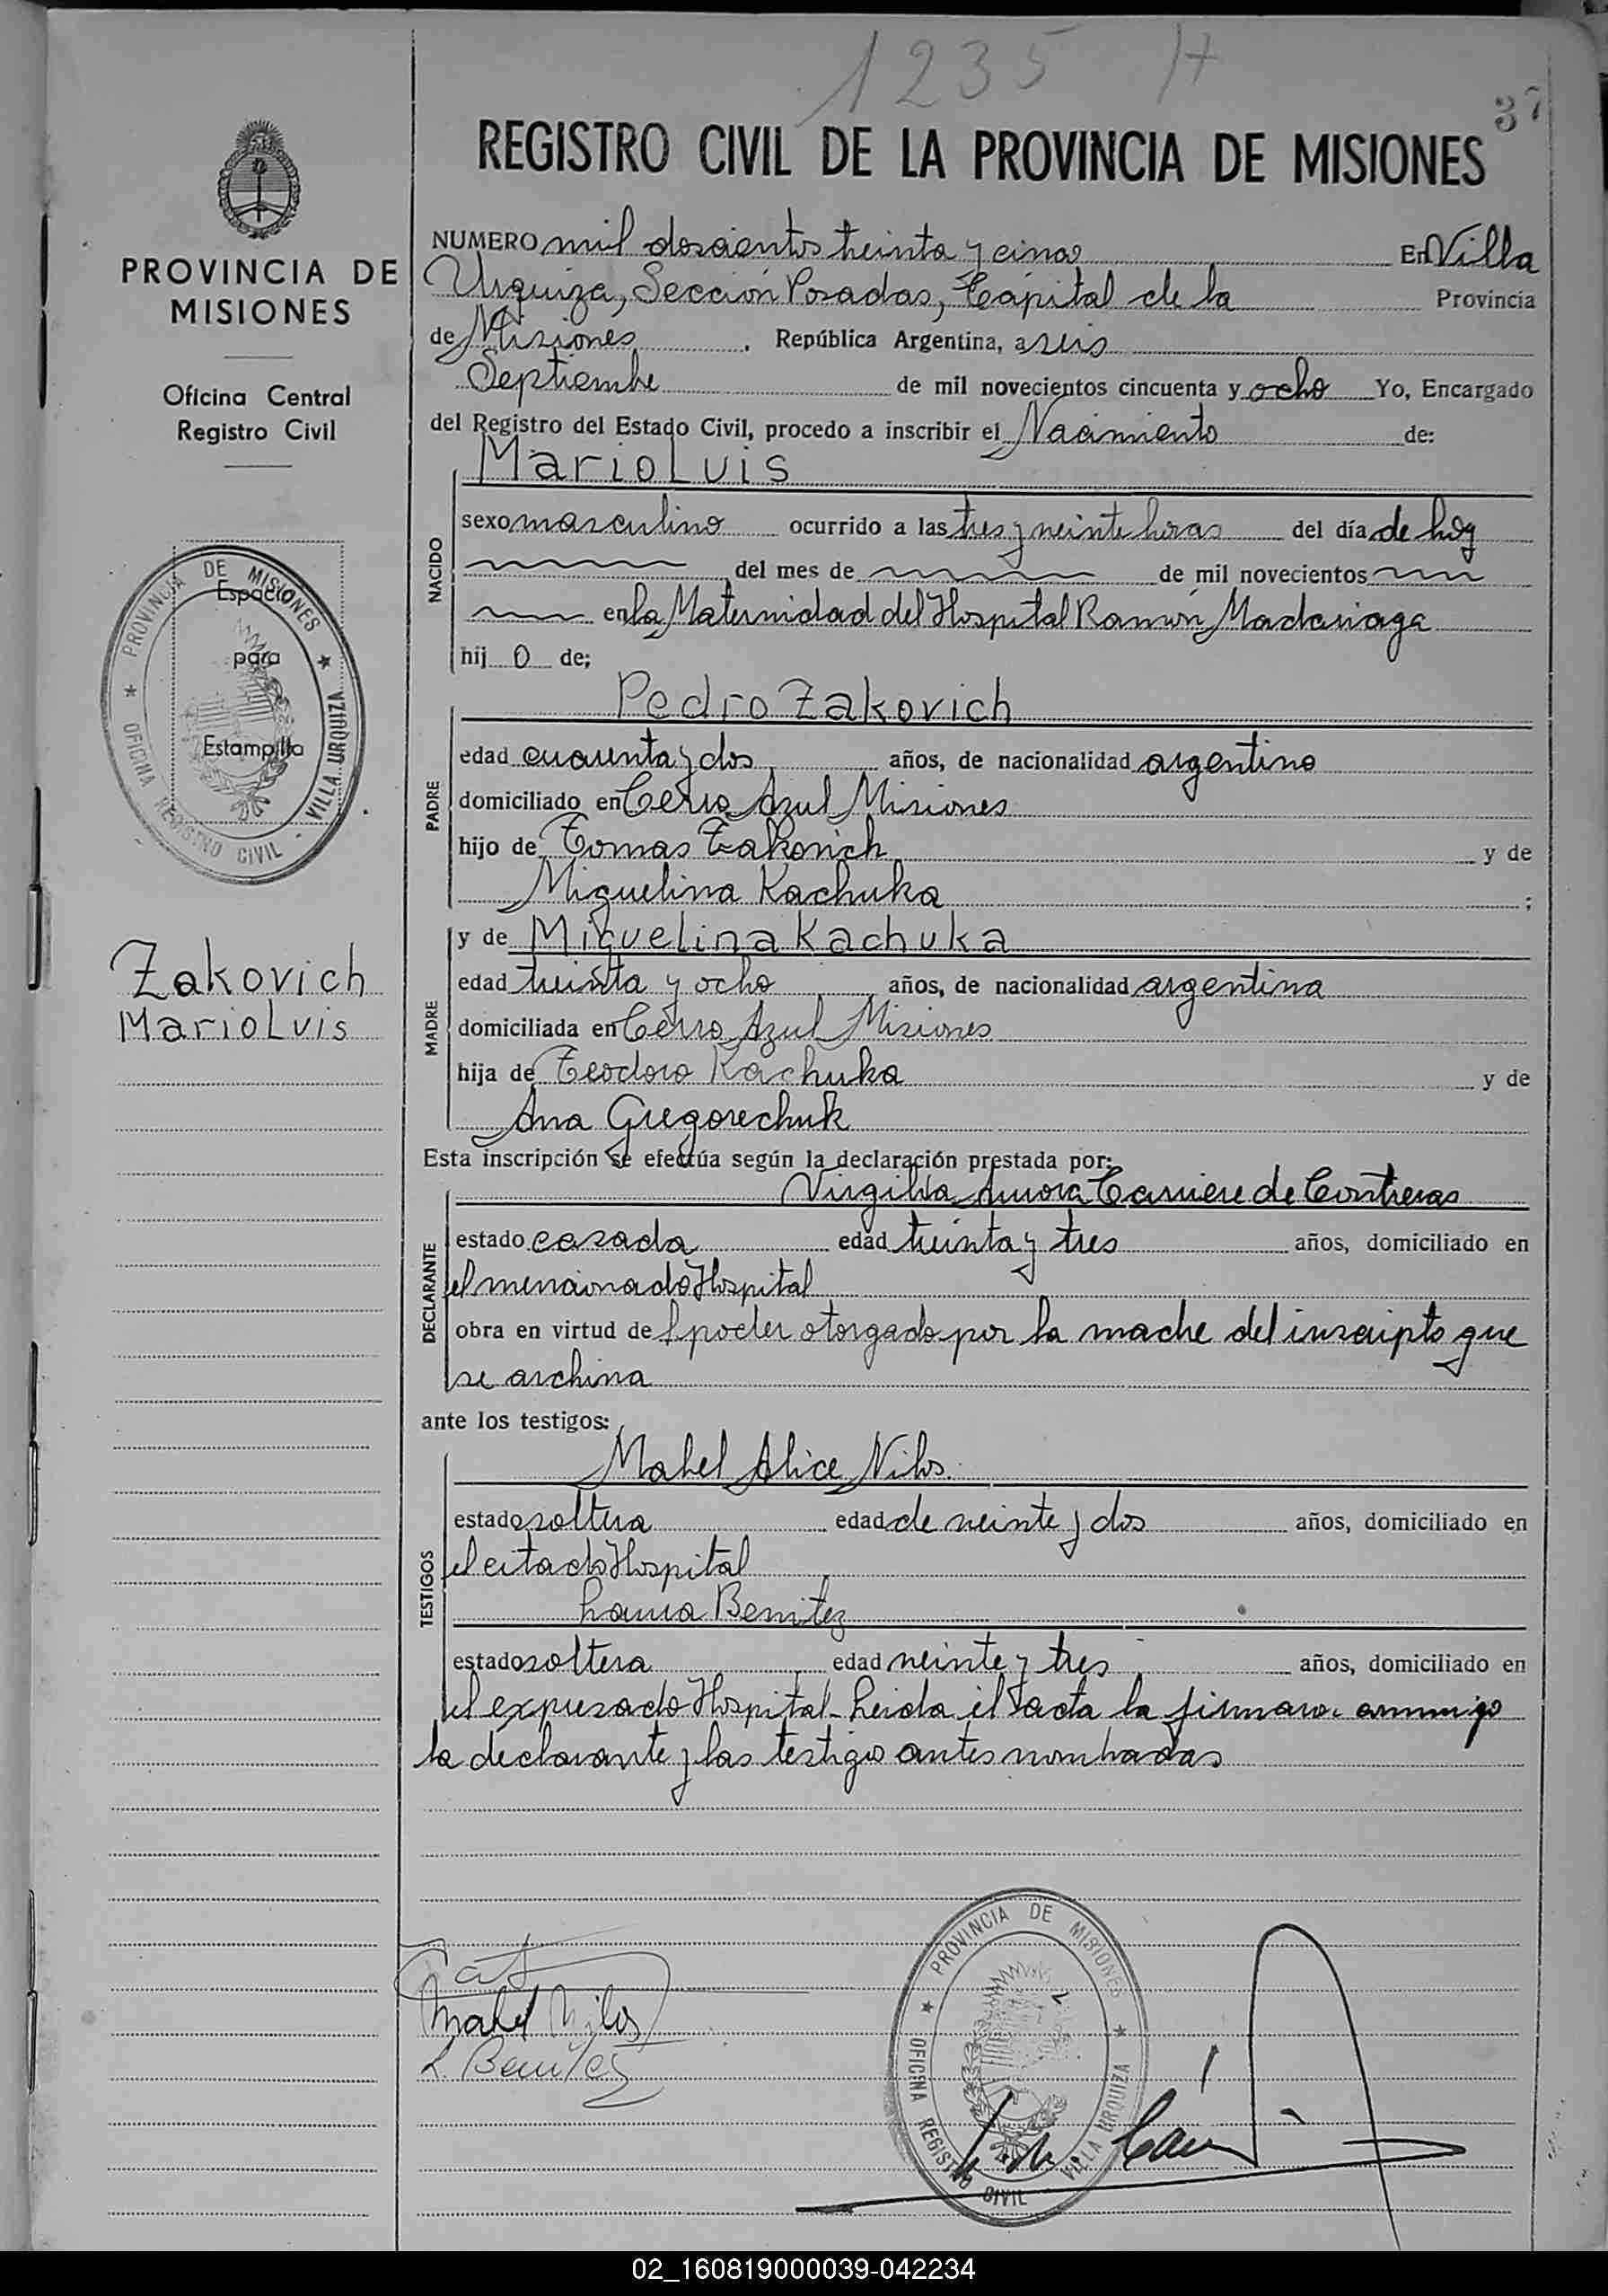 1235 H
37
REGISTRO CIVIL DE LA PROVINCIA DE MISIONES
PROVINCIA DE
MISIONES
Oficina Central
Registro Civil
Espacio
para
Estampilla
PROVINCIA DE MISIONES
OFICINA REGISTRO CIVIL - VILLA URQUIZA
Zakovich
Mario Luis
NUMERO mil doscientos treinta y cinco En Villa
Urquiza, Sección Posadas, Capital de la Provincia
de Misiones, República Argentina, a seis
Septiembre de mil novecientos cincuenta y ocho Yo, Encargado
del Registro del Estado Civil, procedo a inscribir el Nacimiento de:
Mario Luis
NACIDO
sexo masculino ocurrido a las tres y veinte horas del día de hoy
del mes de de mil novecientos
en la Maternidad del Hospital Ramón Madariaga
hijo de;
Pedro Zakovich
PADRE
edad cuarenta y dos años, de nacionalidad argentino
domiciliado en Cerro Azul Misiones
hijo de Tomas Zakovich y de
Miguelina Kachuka ;
MADRE
y de Miguelina Kachuka
edad treinta y ocho años, de nacionalidad argentina
domiciliada en Cerro Azul Misiones
hija de Teodoro Kachuka y de
Ana Gregorechuk
Esta inscripción se efectúa según la declaración prestada por:
Virgilia Aurora Carriere de Contreras
DECLARANTE
estado casada edad treinta y tres años, domiciliado en
el mencionado Hospital
obra en virtud de l poder otorgado por la madre del inscripto que
se archiva
ante los testigos:
Mabel Alice Nilos.
TESTIGOS
estado soltera edad de veinte y dos años, domiciliado en
el citado Hospital
Laura Benitez
estado soltera edad veinte y tres años, domiciliado en
el expresado Hospital- Leida el acta la firmaron conmigo
la declarante y las testigos antes nombradas
Mabel Nilos
L. Benitez
PROVINCIA DE MISIONES
OFICINA REGISTRO CIVIL VILLA URQUIZA
02_160819000039-042234